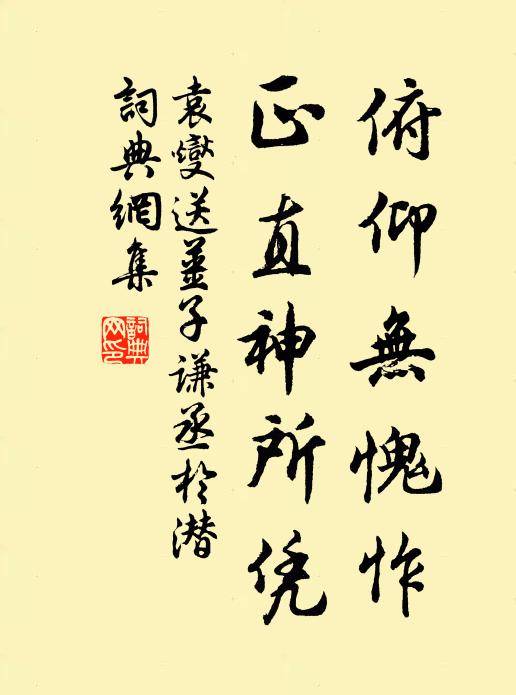 俯仰無愧怍
正直神所凭
袁燮送薑子谦丞於潜
詞典網集
詞典网印